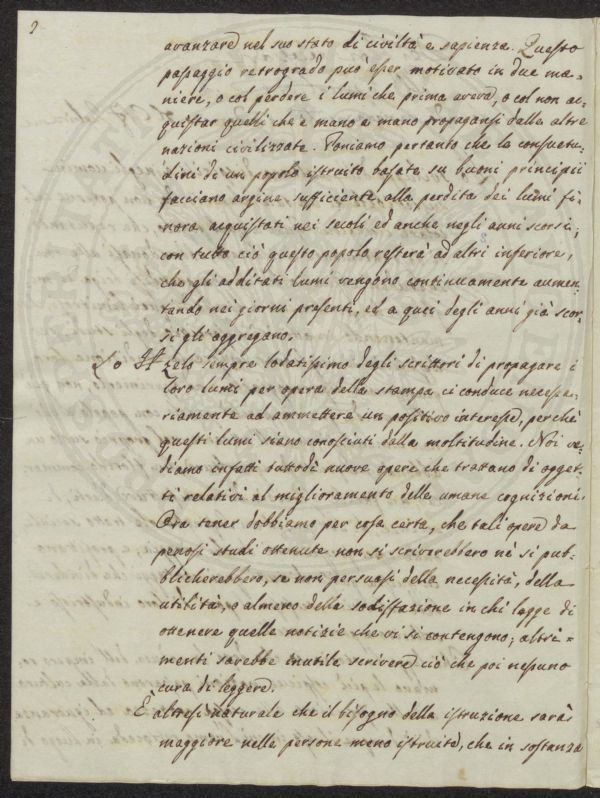 2
avanzare nel suo stato di civiltà e sapienza. Questo
passaggio retrogrado può esser motivato in due ma-
niere, o col perdere i lumi che prima aveva, o col non ac-
quistar quelli che a mano a mano propagansi dalle altre
nazioni civilizzate. Poniamo pertanto che le consuetu-
dini di un popolo istruito basate su buoni principii
facciano argine sufficiente alla perdita dei lumi fi-
nora acquistati nei secoli ed anche negli anni scorsi;
con tutto ciò questo popolo resterà ad altri inferiore,
che gli additati lumi vengono continuamente aumen-
tando nei giorni presenti, ed a quei degli anni già scor-
si gli aggregano.
Lo zelo sempre lodatissimo degli scrittori di propagare i
loro lumi per opera della stampa ci conduce necessa-
riamente ad ammettere un positivo interesse, perchè
questi lumi siano conosciuti dalla moltitudine. Noi ve-
diamo infatti tuttodì nuove opere che trattano di ogget-
ti relativi al miglioramento delle umane cognizioni.
Ora tener dobbiamo per cosa certa, che tali opere da
penosi studi ottenute non si scriverebbero nè si pub-
blicherebbero, se non persuasi della necessità, della
utilità, o almeno della sodisfazione in chi legge di
ottenere quelle notizie che vi si contengono; altri-
menti sarebbe inutile scrivere ciò che poi nessuno
cura di leggere.
È altresì naturale che il bisogno della istruzione sarà
maggiore nelle persone meno istruite, che in sostanza